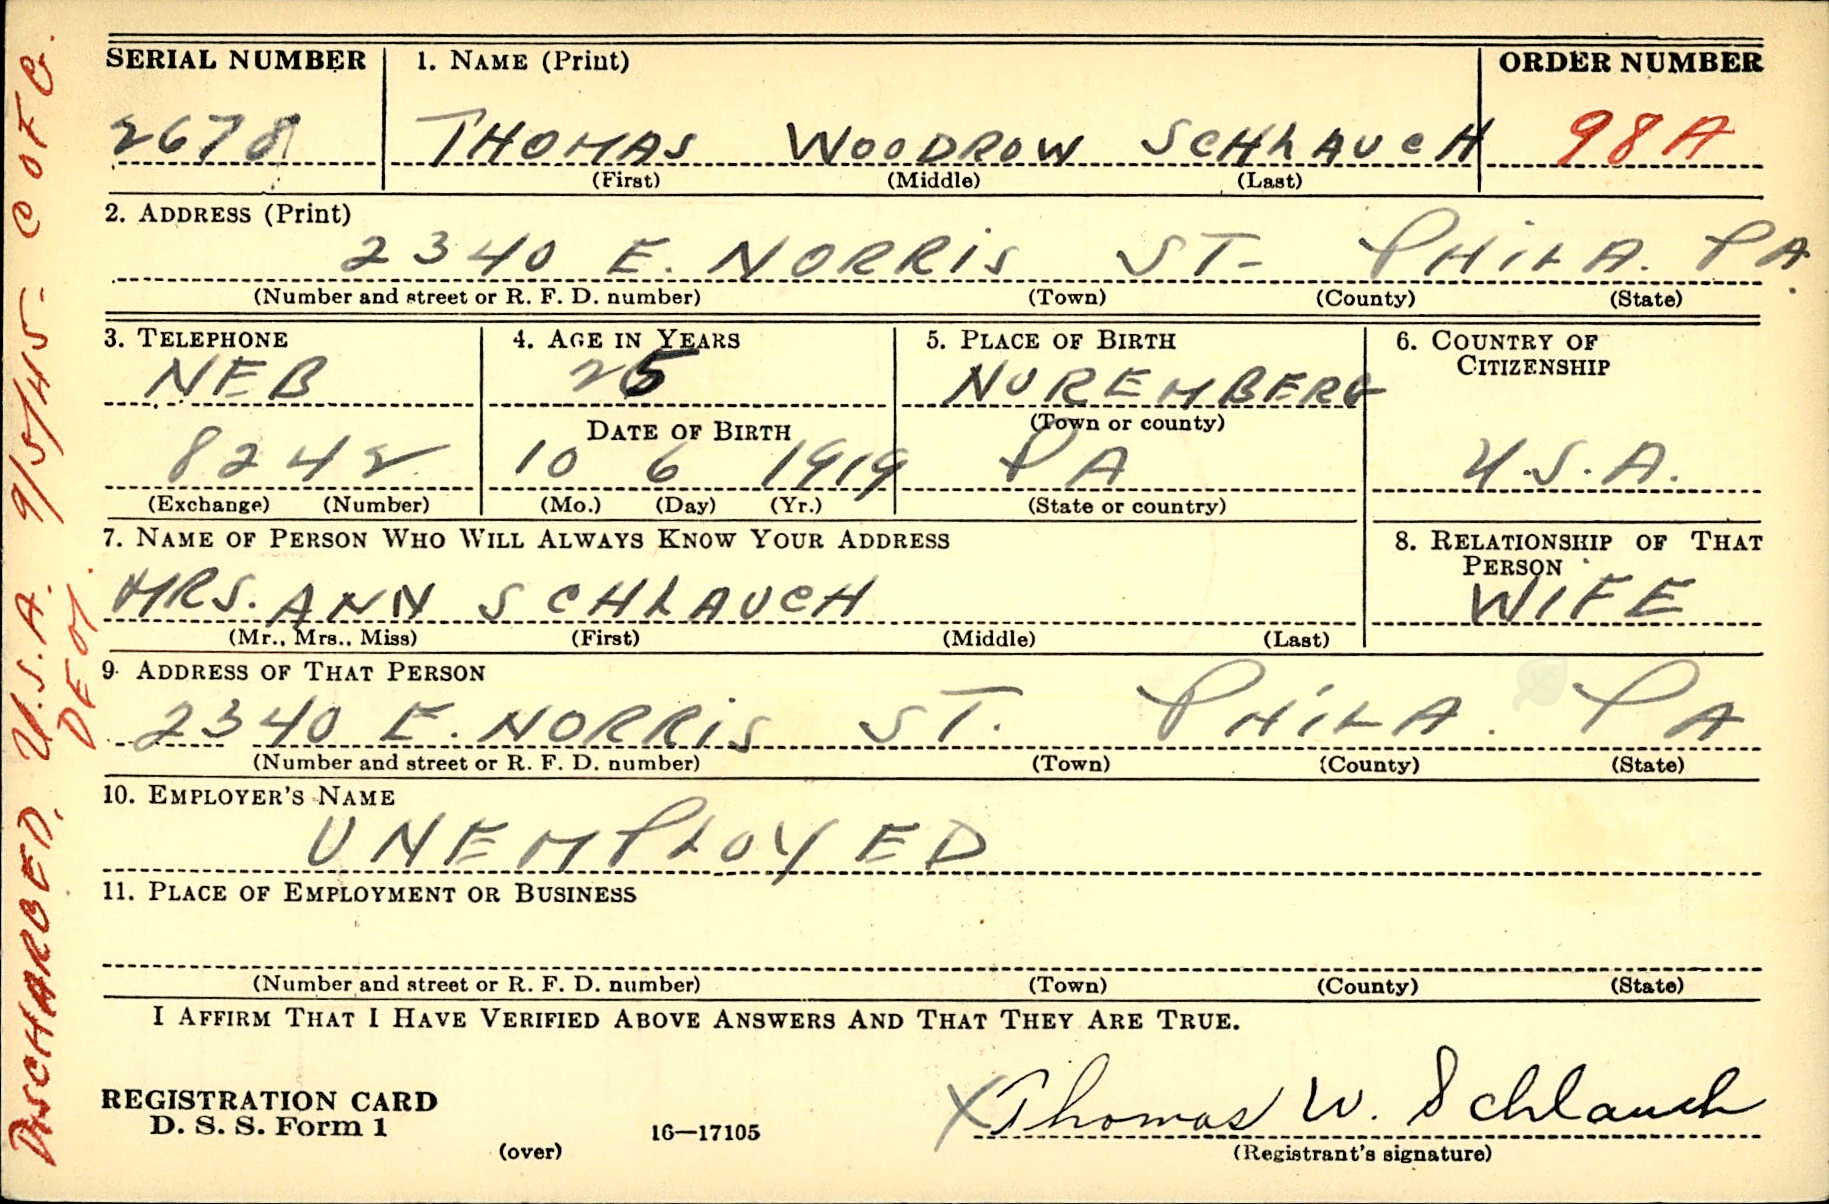 SERIAL NUMBER 1. NAME (Print) ORDER NUMBER
2678 THOMAS WOODROW SCHLAUCH 98A
(First) (Middle) (Last)
2. ADDRESS (Print)
2340 E. NORRIS ST- PHILA. PA.
(Number and street or R. F. D. number) (Town) (County) (State)
3. TELEPHONE 4. AGE IN YEARS 5. PLACE OF BIRTH 6. COUNTRY OF CITIZENSHIP
NEB 25 NUREMBERG
DATE OF BIRTH (Town or county)
8242 10 6 1919 PA U.S.A.
(Exchange) (Number) (Mo.) (Day) (Yr.) (State or country)
7. NAME OF PERSON WHO WILL ALWAYS KNOW YOUR ADDRESS 8. RELATIONSHIP OF THAT PERSON
MRS. ANN SCHLAUCH WIFE
(Mr., Mrs., Miss) (First) (Middle) (Last)
9. ADDRESS OF THAT PERSON
2340 E. NORRIS ST. PHILA. PA
(Number and street or R. F. D. number) (Town) (County) (State)
10. EMPLOYER'S NAME
UNEMPLOYED
11. PLACE OF EMPLOYMENT OR BUSINESS
(Number and street or R. F. D. number) (Town) (County) (State)
I AFFIRM THAT I HAVE VERIFIED ABOVE ANSWERS AND THAT THEY ARE TRUE.
REGISTRATION CARD
D. S. S. Form 1
(over) 16—17105
X Thomas W. Schlauch
(Registrant's signature)
DISCHARGED, U.S.A. 9/5/45- C OF G.
DEM.